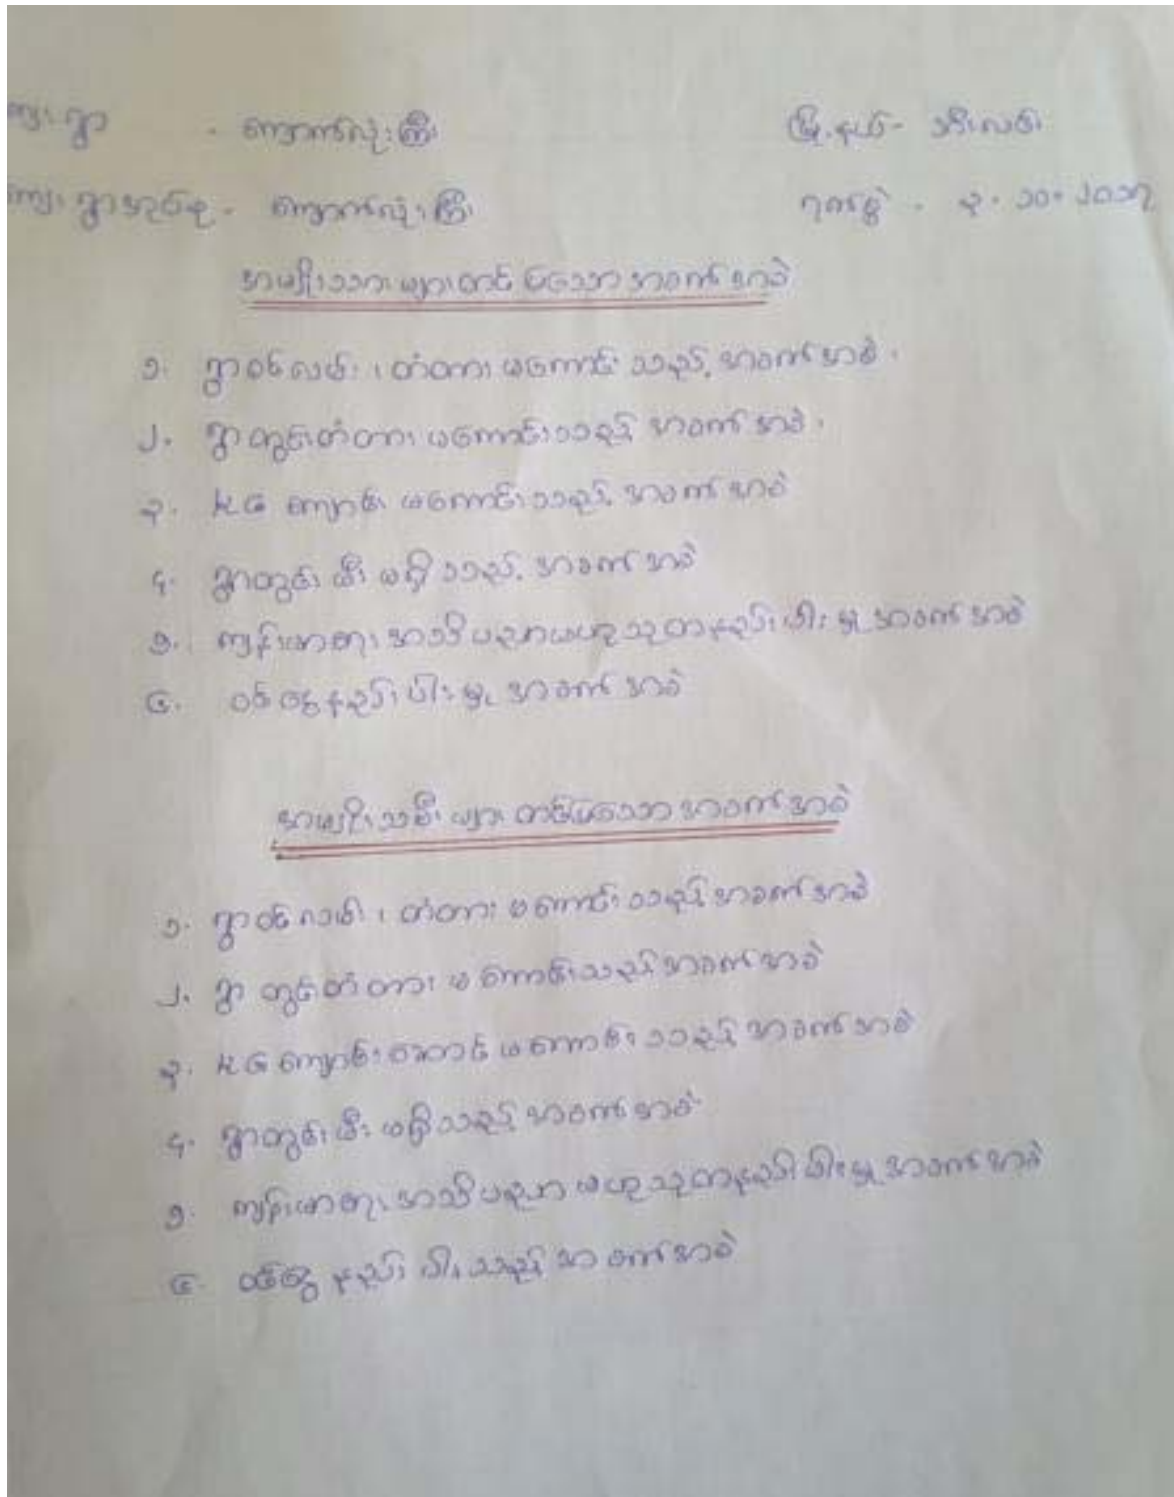 ကျေးရွာ - ကျောက်လုံးကြီး မြို့နယ် - အင်းလေး
ကျေးရွာအုပ်စု - ကျောက်လုံးကြီး ရက်စွဲ - ၃-၁၀-၂၀၁၇
အမျိုးသားများတင်ပြသောအခက်အခဲ
၁. ရွာဝင်လမ်း၊ တံတားမကောင်းသည့်အခက်အခဲ။
၂. ရွာတွင်းတံတားမကောင်းသည့်အခက်အခဲ။
၃. KG ကျောင်းမကောင်းသည့်အခက်အခဲ
၄. ရွာတွင်းမီးမရှိသည့်အခက်အခဲ
၅. ကျန်းမာရေးအသိပညာဗဟုသုတနည်းပါးမှုအခက်အခဲ
၆. ဝင်ငွေနည်းပါးမှုအခက်အခဲ
အမျိုးသမီးများတင်ပြသောအခက်အခဲ
၁. ရွာဝင်လမ်း၊ တံတားမကောင်းသည့်အခက်အခဲ
၂. ရွာတွင်းတံတားမကောင်းသည့်အခက်အခဲ
၃. KG ကျောင်းဆောင်မကောင်းသည့်အခက်အခဲ
၄. ရွာတွင်းမီးမရှိသည့်အခက်အခဲ
၅. ကျန်းမာရေးအသိပညာဗဟုသုတနည်းပါးမှုအခက်အခဲ
၆. ဝင်ငွေနည်းပါးသည့်အခက်အခဲ